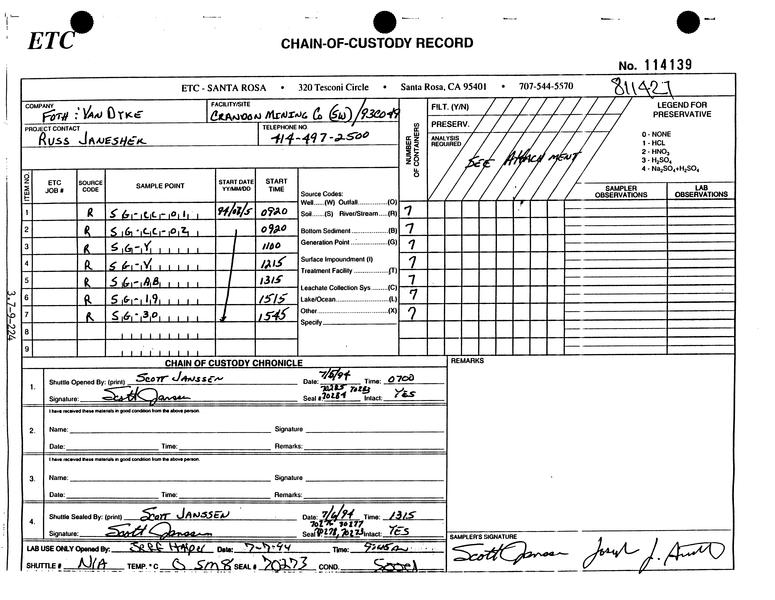 ETC
CHAIN-OF-CUSTODY RECORD
No. 114139
ETC - SANTA ROSA • 320 Tesconi Circle • Santa Rosa, CA 95401 • 707-544-5570
811427
COMPANY FOTH : VAN DYKE
FACILITY/SITE CRANDON MINING CO (SW) /93C049
PROJECT CONTACT RUSS JANESHEK
TELEPHONE NO. 414-497-2500
NUMBER OF CONTAINERS
FILT. (Y/N)
PRESERV.
ANALYSIS REQUIRED
SEE ATTACHMENT
LEGEND FOR PRESERVATIVE
0 - NONE
1 - HCL
2 - HNO3
3 - H2SO4
4 - Na2SO4+H2SO4
SAMPLER OBSERVATIONS
LAB OBSERVATIONS
ITEM NO. ETC JOB # SOURCE CODE SAMPLE POINT START DATE YY/MM/DD START TIME
1 R SG-CC-01 0920 7
2 R SG-CC-02 0920 7
3 R SG-Y 1100 7
4 R SG-Y 1215 7
5 R SG-AB 1315 7
6 R SG-19 1515 7
7 R SG-30 1545 7
8
9
Source Codes:
Well.....(W) Outfall...........(O)
Soil......(S) River/Stream..(R)
Bottom Sediment.............(B)
Generation Point..............(G)
Surface Impoundment (I)
Treatment Facility...........(T)
Leachate Collection Sys..(C)
Lake/Ocean....................(L)
Other..............................(X)
Specify
3.7-9-224
CHAIN OF CUSTODY CHRONICLE
REMARKS
1. Shuttle Opened By: (print) SCOTT JANSSEN Date: Time: 0700
Signature: Scott Janssen Seal # 70284 Intact: YES
I have received these materials in good condition from the above person.
2. Name: Signature
Date: Time: Remarks:
I have received these materials in good condition from the above person.
3. Name: Signature
Date: Time: Remarks:
4. Shuttle Sealed By: (print) SCOTT JANSSEN Date: 7/6/94 Time: 1315
Signature: Scott Janssen Seal # Intact: YES
SAMPLER'S SIGNATURE
Scott Janssen
LAB USE ONLY Opened By: Date: 7-7-94 Time:
SHUTTLE # N/A TEMP. °C SEAL # 70273 COND. Good